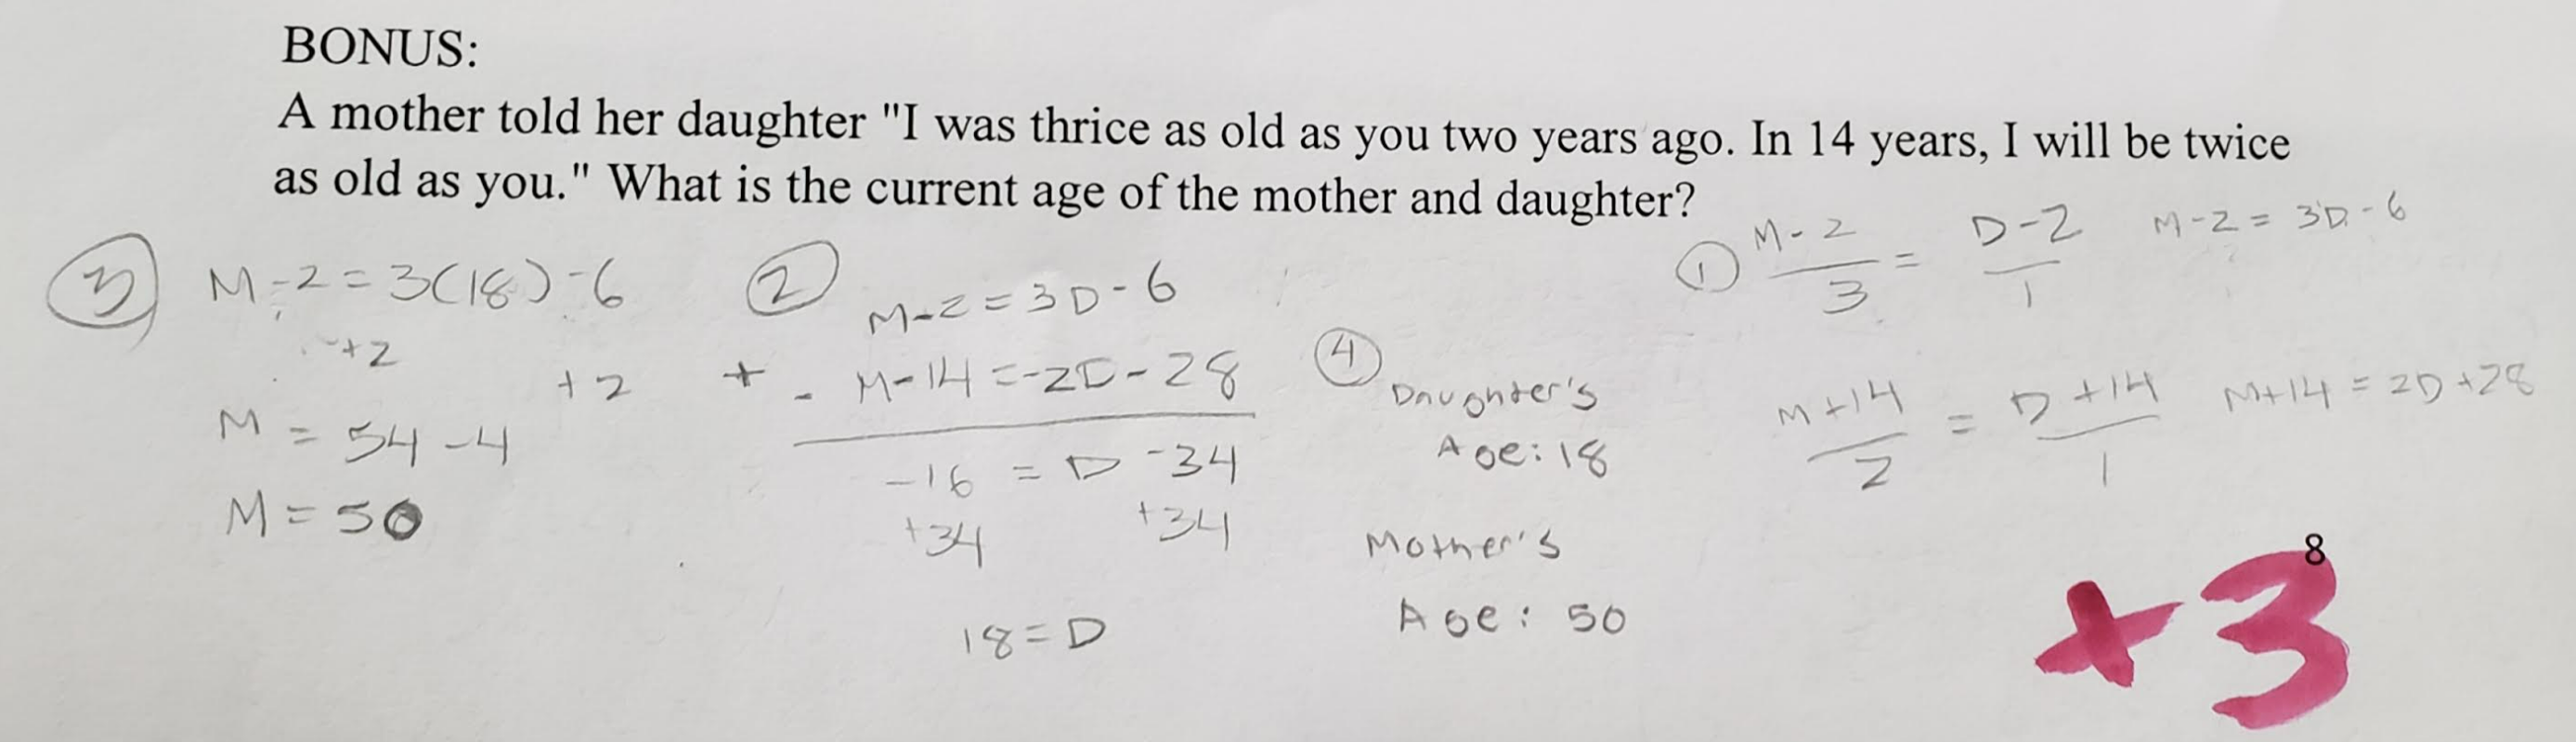 BONUS:
A mother told her daughter "I was thrice as old as you two years ago. In 14 years, I will be twice
as old as you." What is the current age of the mother and daughter?
① M-2/3 = D-2/1 M-2 = 3D-6
M+14/2 = D+14/1 M+14 = 2D+28
② M-2 = 3D-6
+ -M-14 = -2D-28
-16 = D -34
+34 +34
18 = D
③ M-2 = 3(18)-6
+2 +2
M = 54-4
M = 50
④ Daughter's
Age: 18
Mother's
Age: 50
8
+3